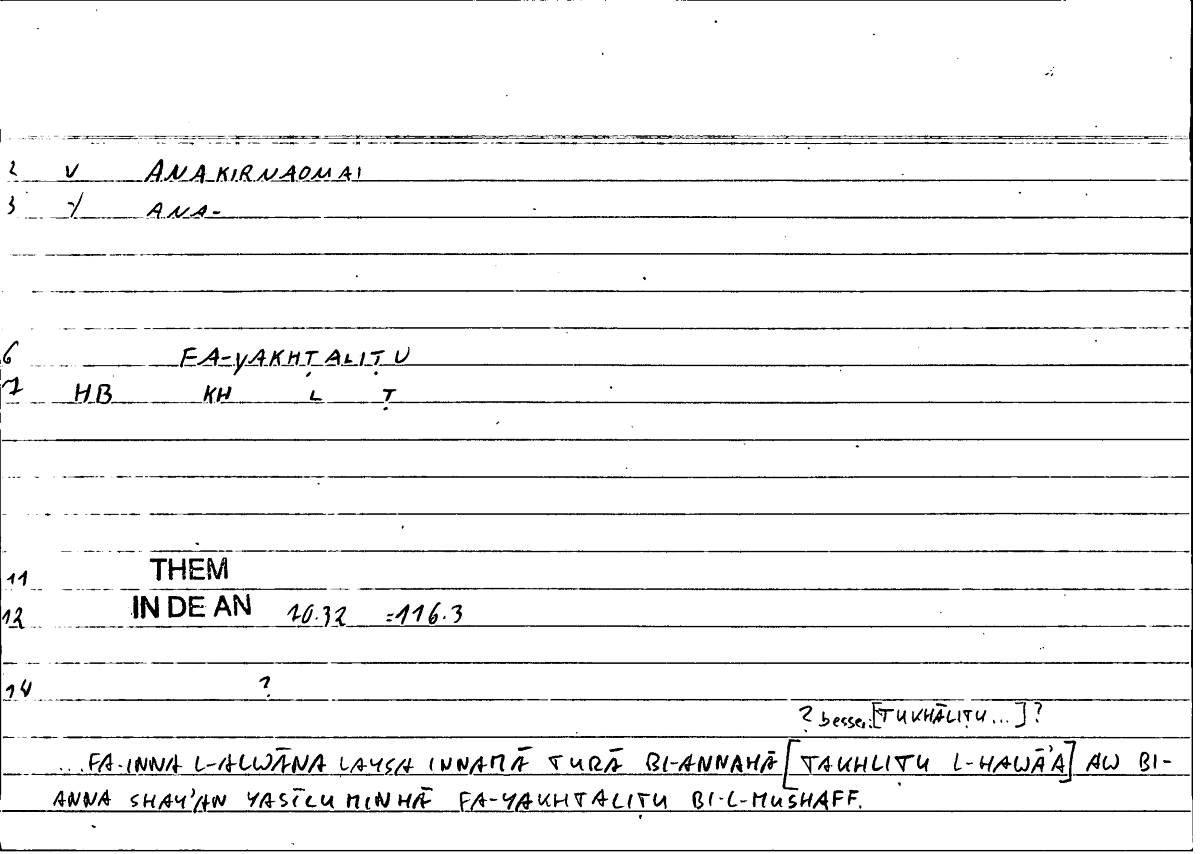 2 V ANAKIRNAOMAI
3 ANA-
6 FA-YAKHTALIṬU
7 HB KH L Ṭ
11 THEM
12 IN DE AN 10.32 =116.3
14 ?
? besser: [TUKHĀLIṬU...]?
...FA-INNA L-ALWĀNA LAYSA INNAMĀ TURĀ BI-ANNAHĀ [TAKHLIṬU L-HAWĀ'A] AW BI-
ANNA SHAY'AN YASĪLU MINHĀ FA-YAKHTALIṬU BI-L-MUSHAFF.